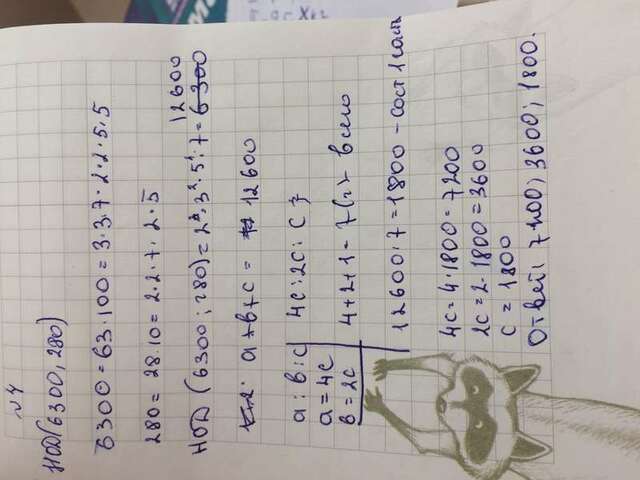 № 4
НОД(6300, 280)
6300 = 63·100 = 3·3·7·2·2·5·5
280 = 28·10 = 2·2·7·2·5
12600
НОД (6300; 280) = 2³·3²·5²·7 = 6300
a+b+c = 12600
a : b : c
a = 4c
b = 2c
4c : 2c : c
4+2+1 = 7(ч) всего
12600:7 = 1800 - сост 1 часть
4c = 4·1800 = 7200
2c = 2·1800 = 3600
c = 1800
Ответ: 7200; 3600; 1800.